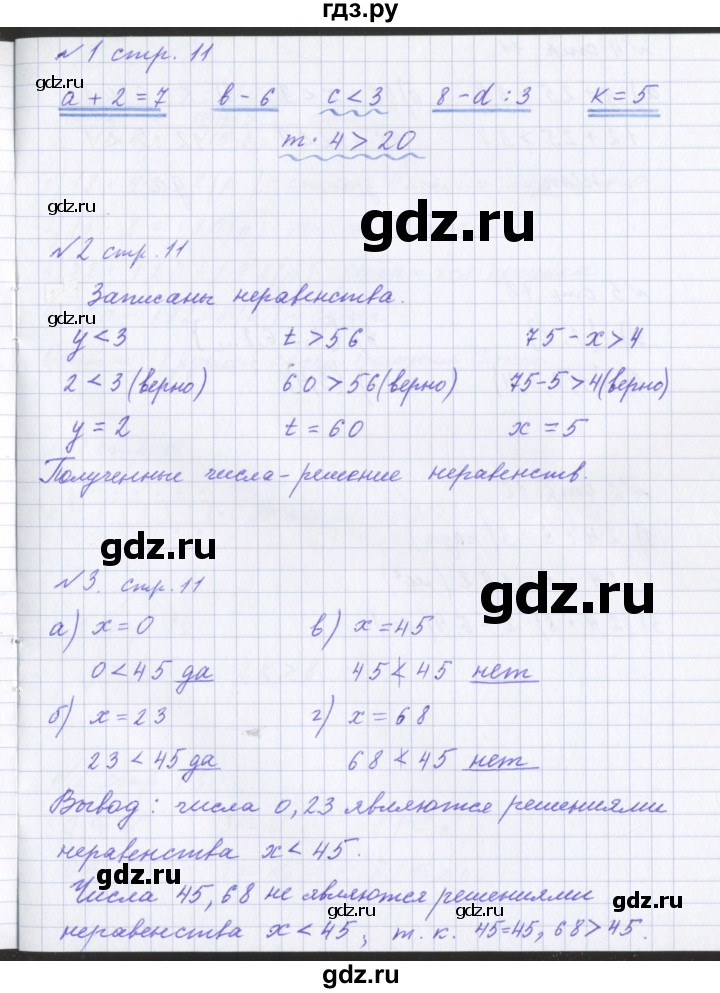 гдз.ру
№1 стр. 11
a + 2 = 7 b - 6 c < 3 8 - d : 3 k = 5
m · 4 > 20
№2 стр. 11
Записаны неравенства.
y < 3 t > 56 75 - x > 4
2 < 3 (верно) 60 > 56 (верно) 75 - 5 > 4 (верно)
y = 2 t = 60 x = 5
Полученные числа - решение неравенств.
№3. стр. 11
а) x = 0 в) x = 45
0 < 45 да 45 < 45 нет
б) x = 23 г) x = 68
23 < 45 да 68 < 45 нет
Вывод: числа 0, 23 являются решениями
неравенства x < 45.
Числа 45, 68 не являются решениями
неравенства x < 45, т. к. 45 = 45, 68 > 45.
gdz.ru
gdz.ru
gdz.ru
gdz.ru
gdz.ru
gdz.ru
gdz.ru
gdz.ru
gdz.ru
gdz.ru
gdz.ru
gdz.ru
gdz.ru